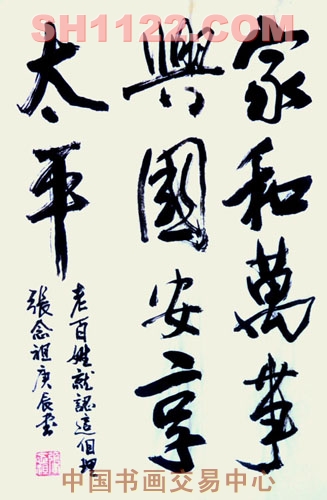 SH1122.COM
家和萬事
興國安享
太平
老百姓就認這個理
張念祖庚辰書
中国书画交易中心